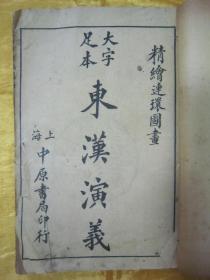 精繪連環圖畫
大字
足本
東漢演義
上海
中原書局印行